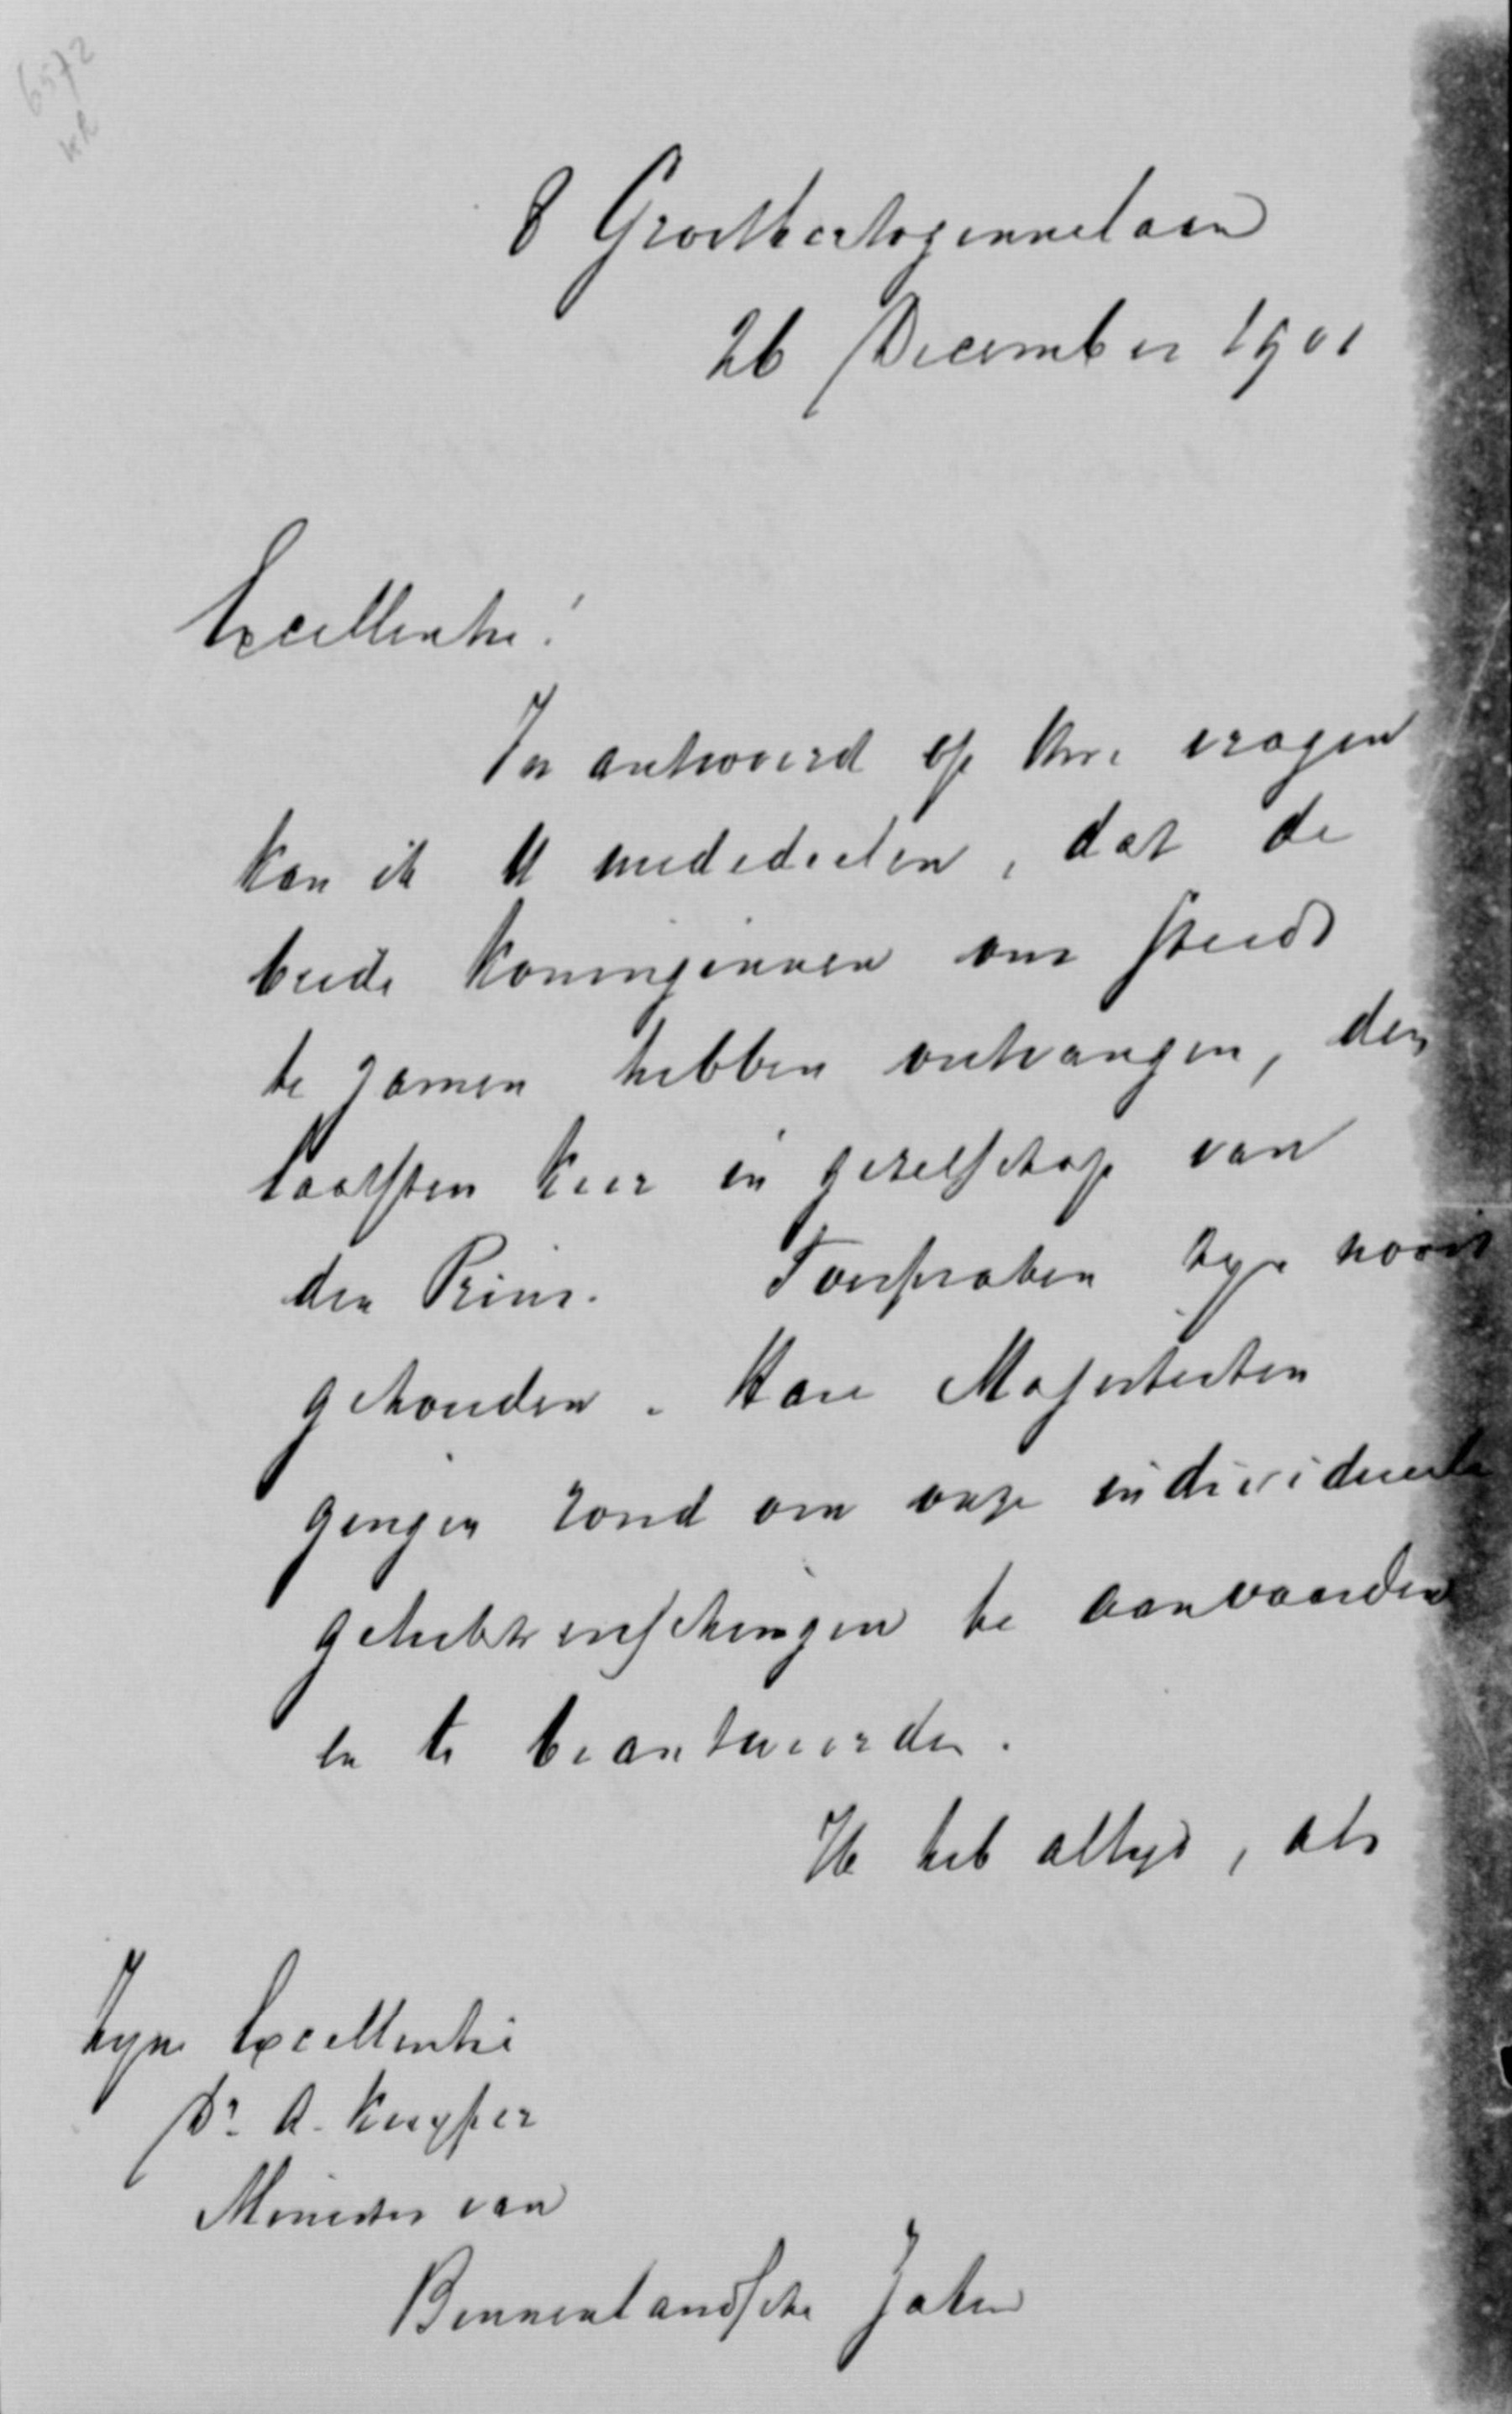 6572
KR
8 Groothertoginnelaan
26 December 1901
Excellentie!
In antwoord op Uwe vragen
kan ik U mededeelen, dat de
beide Koninginnen ons steeds
te zamen hebben ontvangen, den
laatsten keer in gezelschap van
den Prins. Toespraken zijn nooit
gehouden. Hare Majesteiten
gingen rond om onze individueele
gelukwenschingen te aanvaarden
en te beantwoorden.
Ik heb altijd, als
Zijne Excellentie
Dr. A. Kuyper
Minister van
Binnenlandsche Zaken